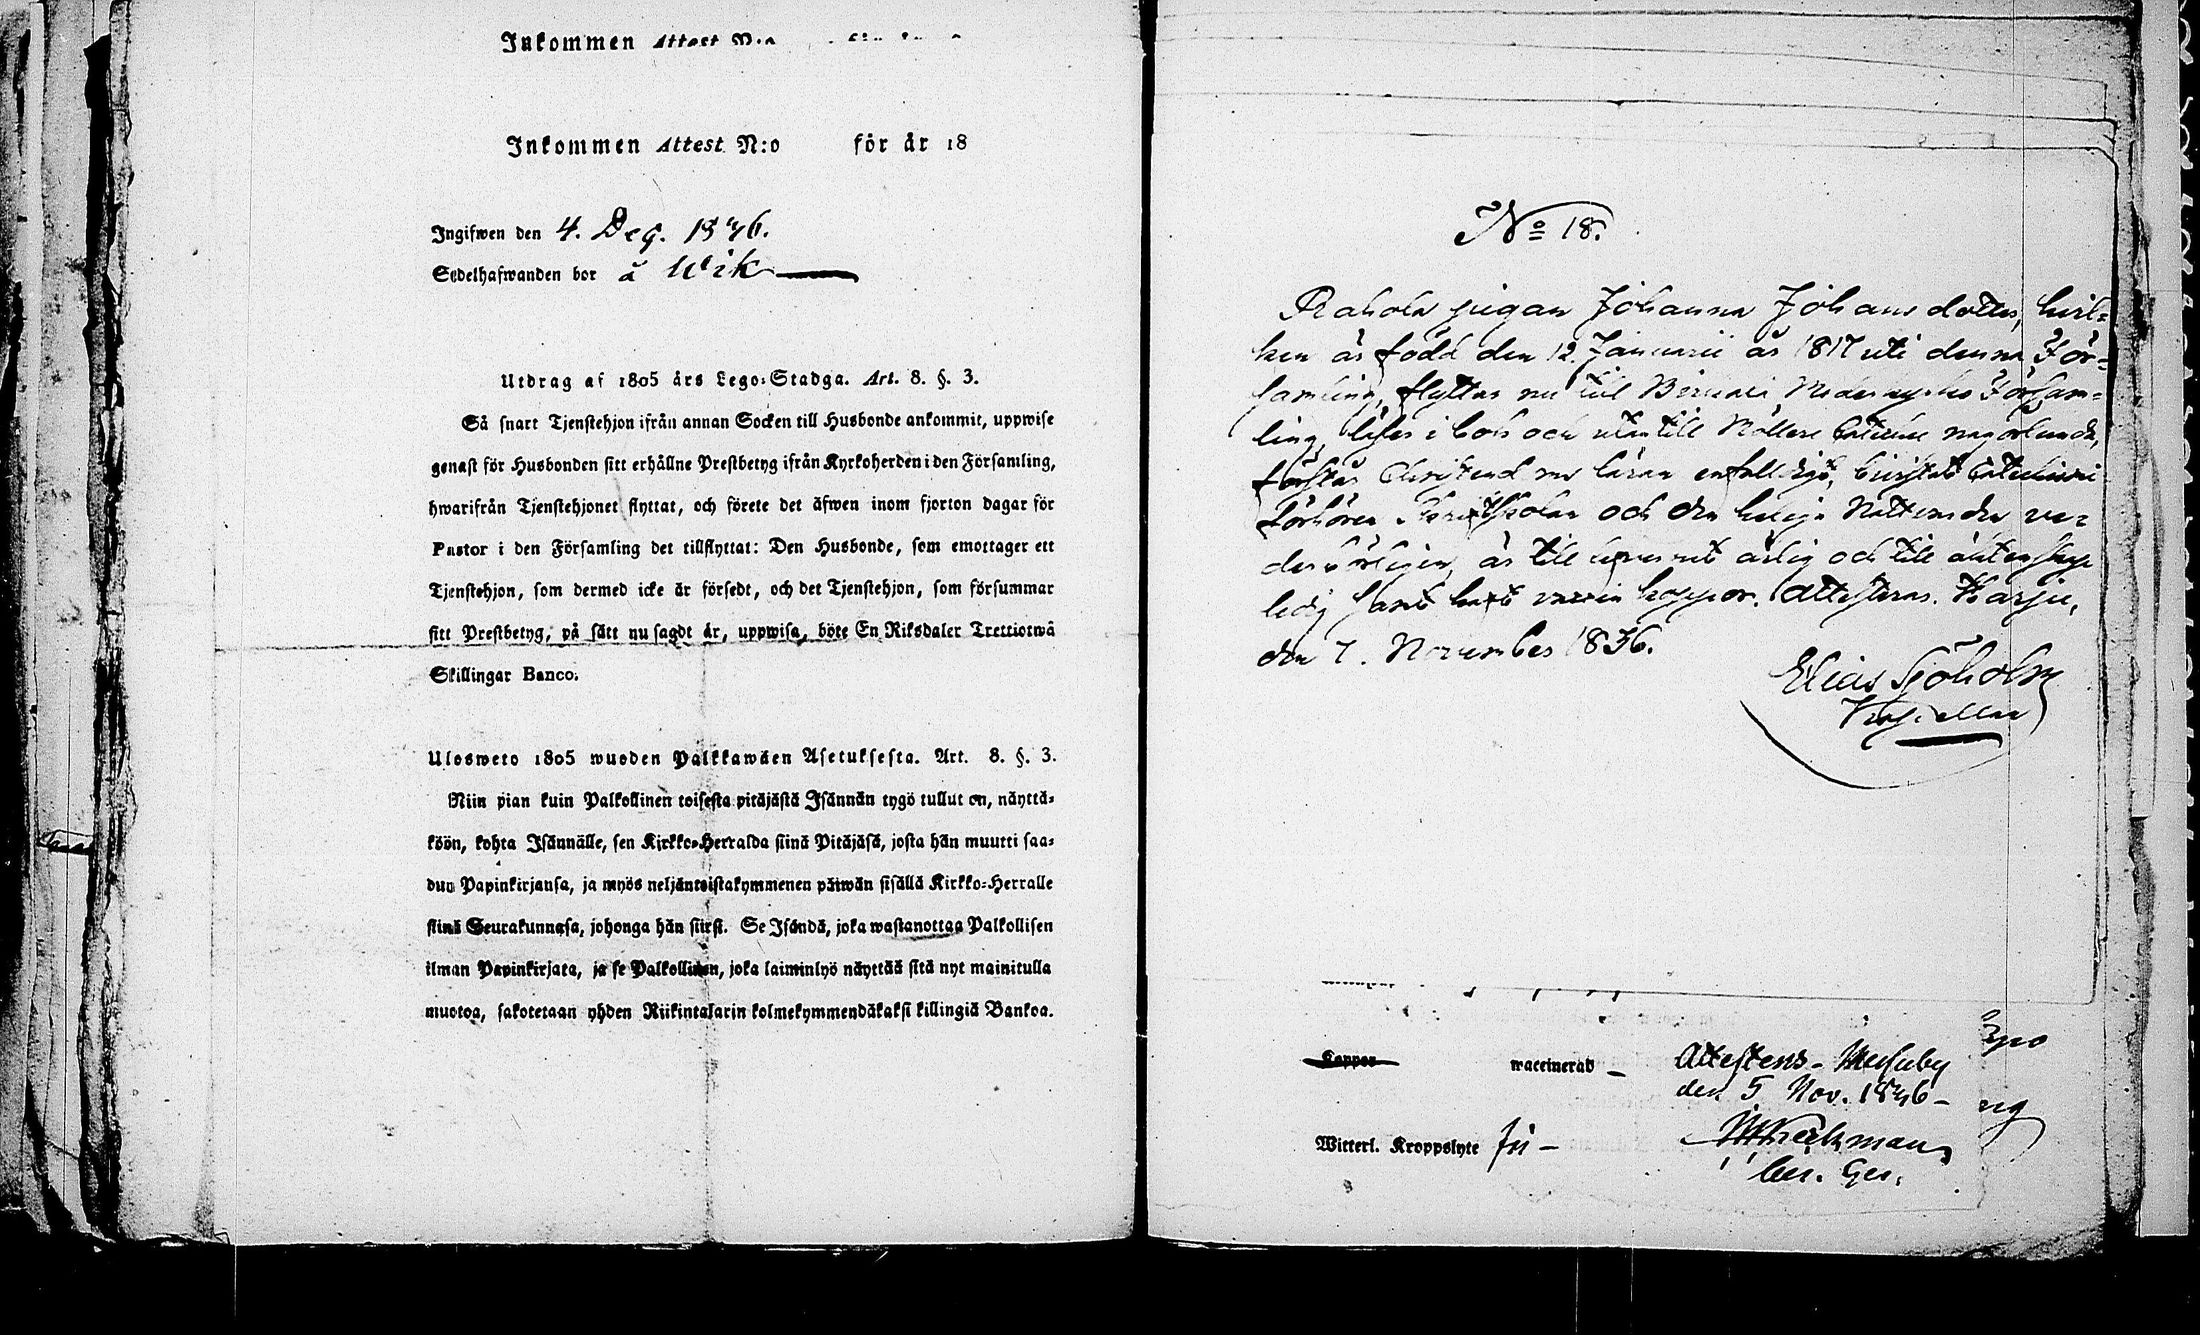 Inkommen Attest N:o
Inkommen Attest N:o för år 18
Ingifwen den 4. Dec. 1836.
Sedelhafwanden bor å Wik
Utdrag af 1805 års Lego-Stadga. Art. 8. §. 3.
Så snart Tjenstehjon ifrån annan Socken till Husbonde ankommit, uppwise
genast för Husbonden sitt erhållne Prestbetyg ifrån Kyrkoherden i den Församling,
hwarifrån Tjenstehjonet flyttat, och förete det äfwen inom fjorton dagar för
Pastor i den Församling det tillflyttat: Den Husbonde, som emottager ett
Tjenstehjon, som dermed icke är försedt, och det Tjenstehjon, som försummar
sitt Prestbetyg, på sätt nu sagdt är, uppwisa, böte En Riksdaler Trettiotwå
Skillingar Banco.
Ulosweto 1805 wuoden Palkkawäen Asetuksesta. Art. 8. §. 3.
Niin pian kuin Palkollinen toisesta pitäjästä Isännän tygö tullut on, näyttä-
köön, kohta Isännälle, sen Kirkko-Herralda siinä Pitäjäsä, josta hän muutti saa-
dun Papinkirjansa, ja myös neljäntoistakymmenen päiwän sisällä Kirkko-Herralle
siinä Seurakunnasa, johonga hän siirsi. Se Isändä, joka wastanottaa Palkollisen
ilman Papinkirjata, ja se Palkollinen, joka laiminlyö näyttää sitä nyt mainitulla
muotoa, sakotetaan yhden Riikintalarin kolmekymmendäkaksi killingiä Bankoa.
No 18.
pigan Johanna Johans dotter, hvil-
ken är född den 12. Januarii år 1817 uti denna För-
samling, flyttar nu till Församl-
ling, läser i bok och utantill någorlunda,
förstår Christendoms läran enfaldigt, bivistat
förhören och den helige Nattvarden ve-
derbörligen, är till ärlig och till äktenskap
ledig samt haft koppor. Attesteras. Karju,
den 7. November 1836.
Elias Sjöholm
Koppor waccinerad – Attesteras –
den 5 Nov. 1836 –
Witterl. Kroppslyte